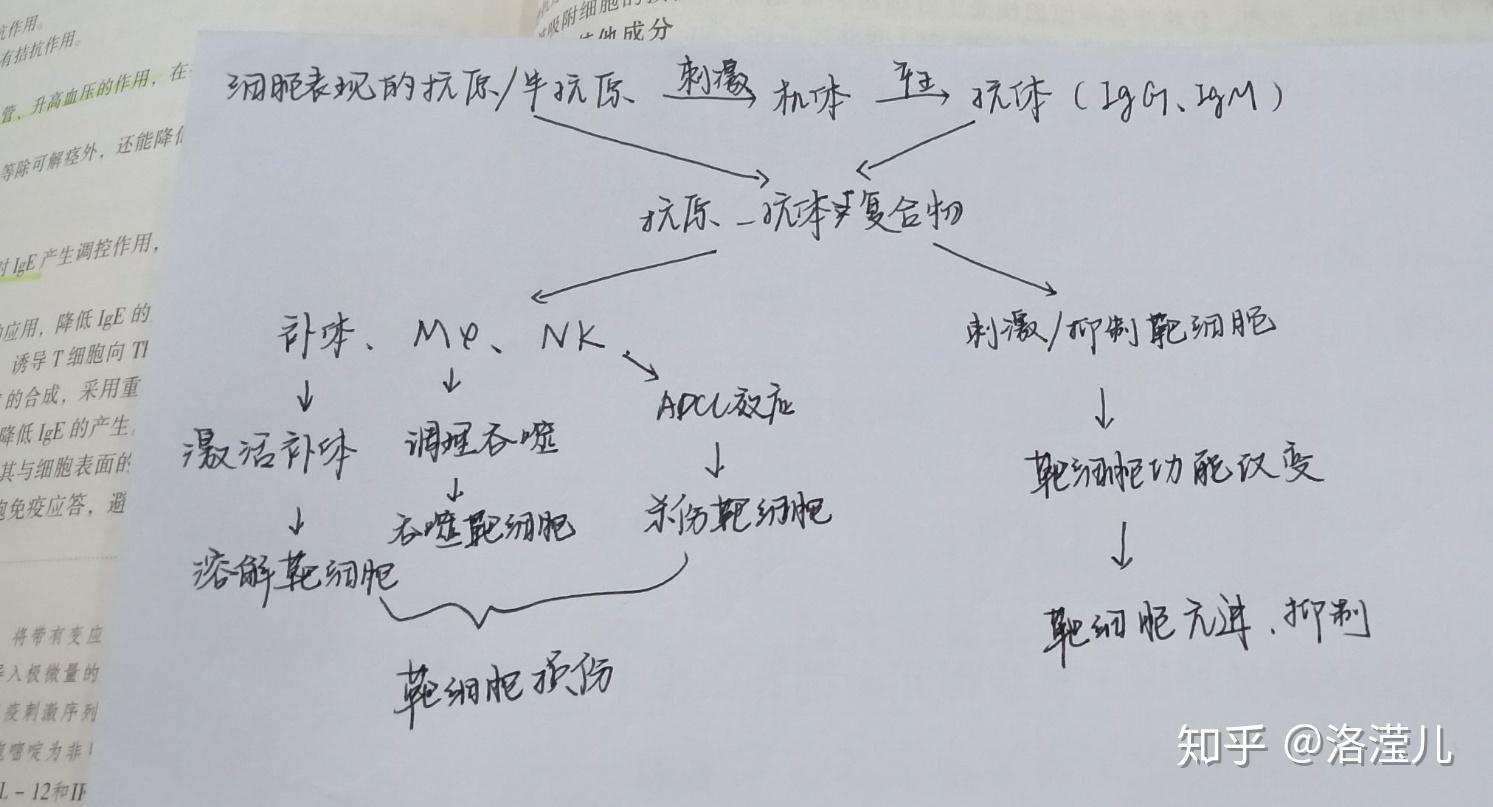 抗作用。
有拮抗作用。
管、升高血压的作用，在
等除可解痉外，还能降低
对IgE产生调控作用，
应用，降低IgE的
诱导T细胞向TH
的合成，采用重
降低IgE的产生
其与细胞表面的
胞免疫应答，避
将带有变应
导入极微量的
疫刺激序列
胞嘧啶为非
L-12和IF
吸附细胞的
其他成分
细胞表现的抗原/半抗原 刺激 机体 产生 抗体（IgG、IgM）
抗原-抗体复合物
补体、Mφ、NK
刺激/抑制靶细胞
ADCC效应
激活补体 调理吞噬
靶细胞功能改变
溶解靶细胞 吞噬靶细胞 杀伤靶细胞
靶细胞亢进、抑制
靶细胞损伤
知乎 @洛滢儿